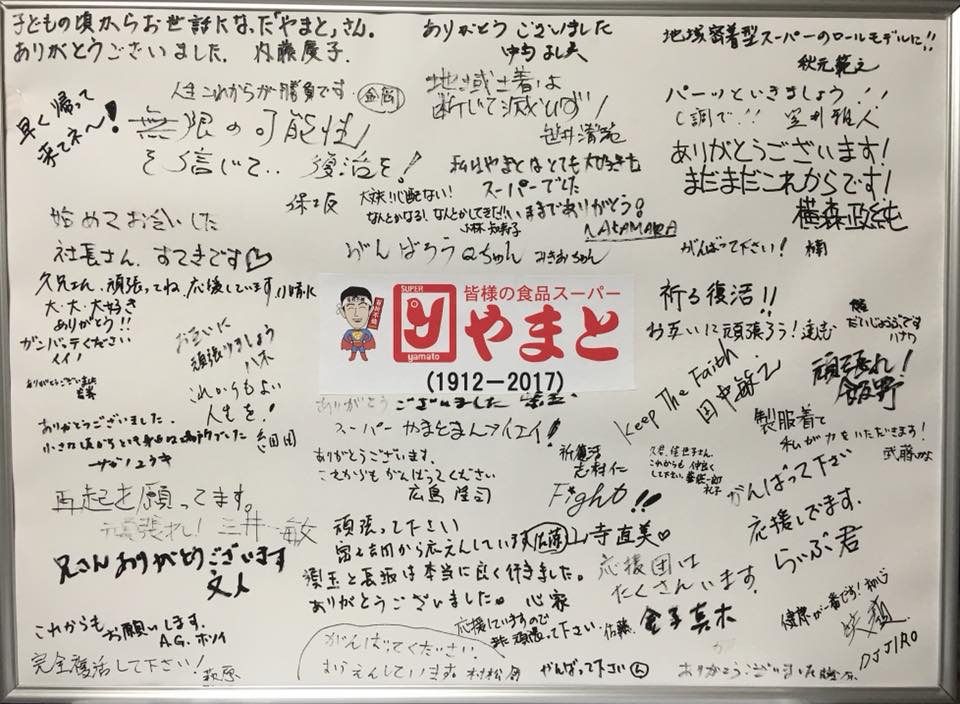 子どもの頃からお世話になった「やまと」さん。
ありがとうございました。内藤慶子
ありがとうございました
地域密着型スーパーのロールモデルに!!
秋元範之
早く帰って
来てネ〜!
人生これからが勝負です。
無限の可能性
を信じて.. 復活を!
保坂
地域土着は
断じて滅びず!
パーッといきましょう!!
C調で!!
ありがとうございます!
まだまだこれからです!
横森政純
私はやまとはとても大好きな
スーパーでした
いままでありがとう。
NAKAMARA
大丈夫!心配ない!
なんとかなる!なんとかしてきた!!
小林
がんばろう Qちゃん
がんばって下さい! 楠
始めてお会いした
社長さん、すてきです♡
久兄さん、頑張ってね、応援しています
大・大・大好き
ありがとう!!
ガンバッテください
お互いに
頑張りましょう
八木
これからもよい
人生を!
SUPER
y
yamato
皆様の食品スーパー
やまと
(1912−2017)
祈る復活!!
お互いに頑張ろう!
だいじょうぶです
頑張れ!
飯野
Keep The Faith
田中敏之
製服着て
私が力をいただきます!
武藤
ありがとうございました
スーパーやまとまんアイエイ!
ありがとうございました。
ありがとうございます。
これからもがんばってください
広島隆司
祈復活
志村仁
Fight!!
これからも仲良く
して下さい。
がんばって下さい
応援してます。
らいぶ君
再起を願ってます。
元気張れ! 三井 敏
兄さんありがとうございます
文人
頑張って下さい
富士吉田から応えんしています 佐藤
山寺直美♡
須玉と長坂は本当に良く行きました。
ありがとうございました。 心家
応援団は
たくさんいます
金子真木
応援していますので
頑張って下さい。佐藤
健康が一番です!
DJ JIRO
これからもお願いします。
A.G.ホソイ
完全復活して下さい!
萩原
がんばってください。
おうえんしています。村松
がんばって下さい
ありがとうございました